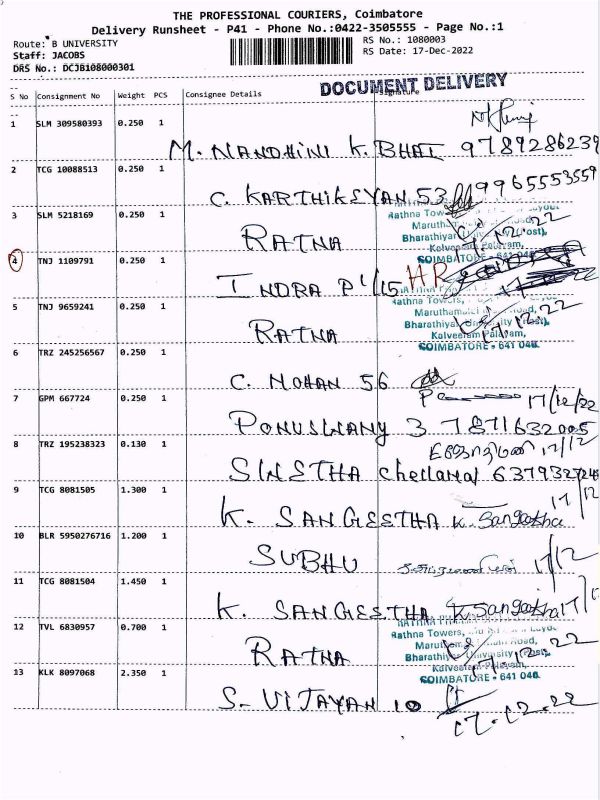 THE PROFESSIONAL COURIERS, Coimbatore
Delivery Runsheet - P41 - Phone No.:0422-3505555 - Page No.:1
Route: B UNIVERSITY
RS No.: 1080003
Staff: JACOBS
RS Date: 17-Dec-2022
DRS No.: DCJBi08000301
DOCUMENT DELIVERY
S No Consignment No Weight PCS Consignee Details Signature
1 SLM 309580393 0.250 1
M. NANDHINI K. BHAT 9789286239
2 TCG 10088513 0.250 1
C. KARTHIKEYAN 53 9965553559
3 SLM 5218169 0.250 1
RATNA
Rathna Towers,
Bharathiyar University (Post),
Kalveeram Palayam,
COIMBATORE - 641 046.
4 TNJ 1109791 0.250 1
INDRA P 1/15 HR
5 TNJ 9659241 0.250 1
RATNA 17.12.22
Rathna Towers,
Bharathiyar University (Post),
Kalveeram Palayam,
COIMBATORE - 641 046.
6 TRZ 245256567 0.250 1
C. MOHAN 56
7 GPM 667724 0.250 1
17/12/22
PONUSWAMY 3 7871632005
8 TRZ 195238323 0.130 1
17/12
SINETHA chellamal
9 TCG 8081505 1.300 1
17/12
K. SANGEETHA K. Sangeetha
10 BLR 5950276716 1.200 1
SUBHU 17/12
11 TCG 8081504 1.450 1
K. SANGEETHA K Sangeetha
12 TVL 6830957 0.700 1
RATNA 17.12.22
Rathna Towers,
Bharathiyar University (Post),
Kalveeram Palayam,
COIMBATORE - 641 046.
13 KLK 8097068 2.350 1
S. VIJAYAN 10
17.12.22